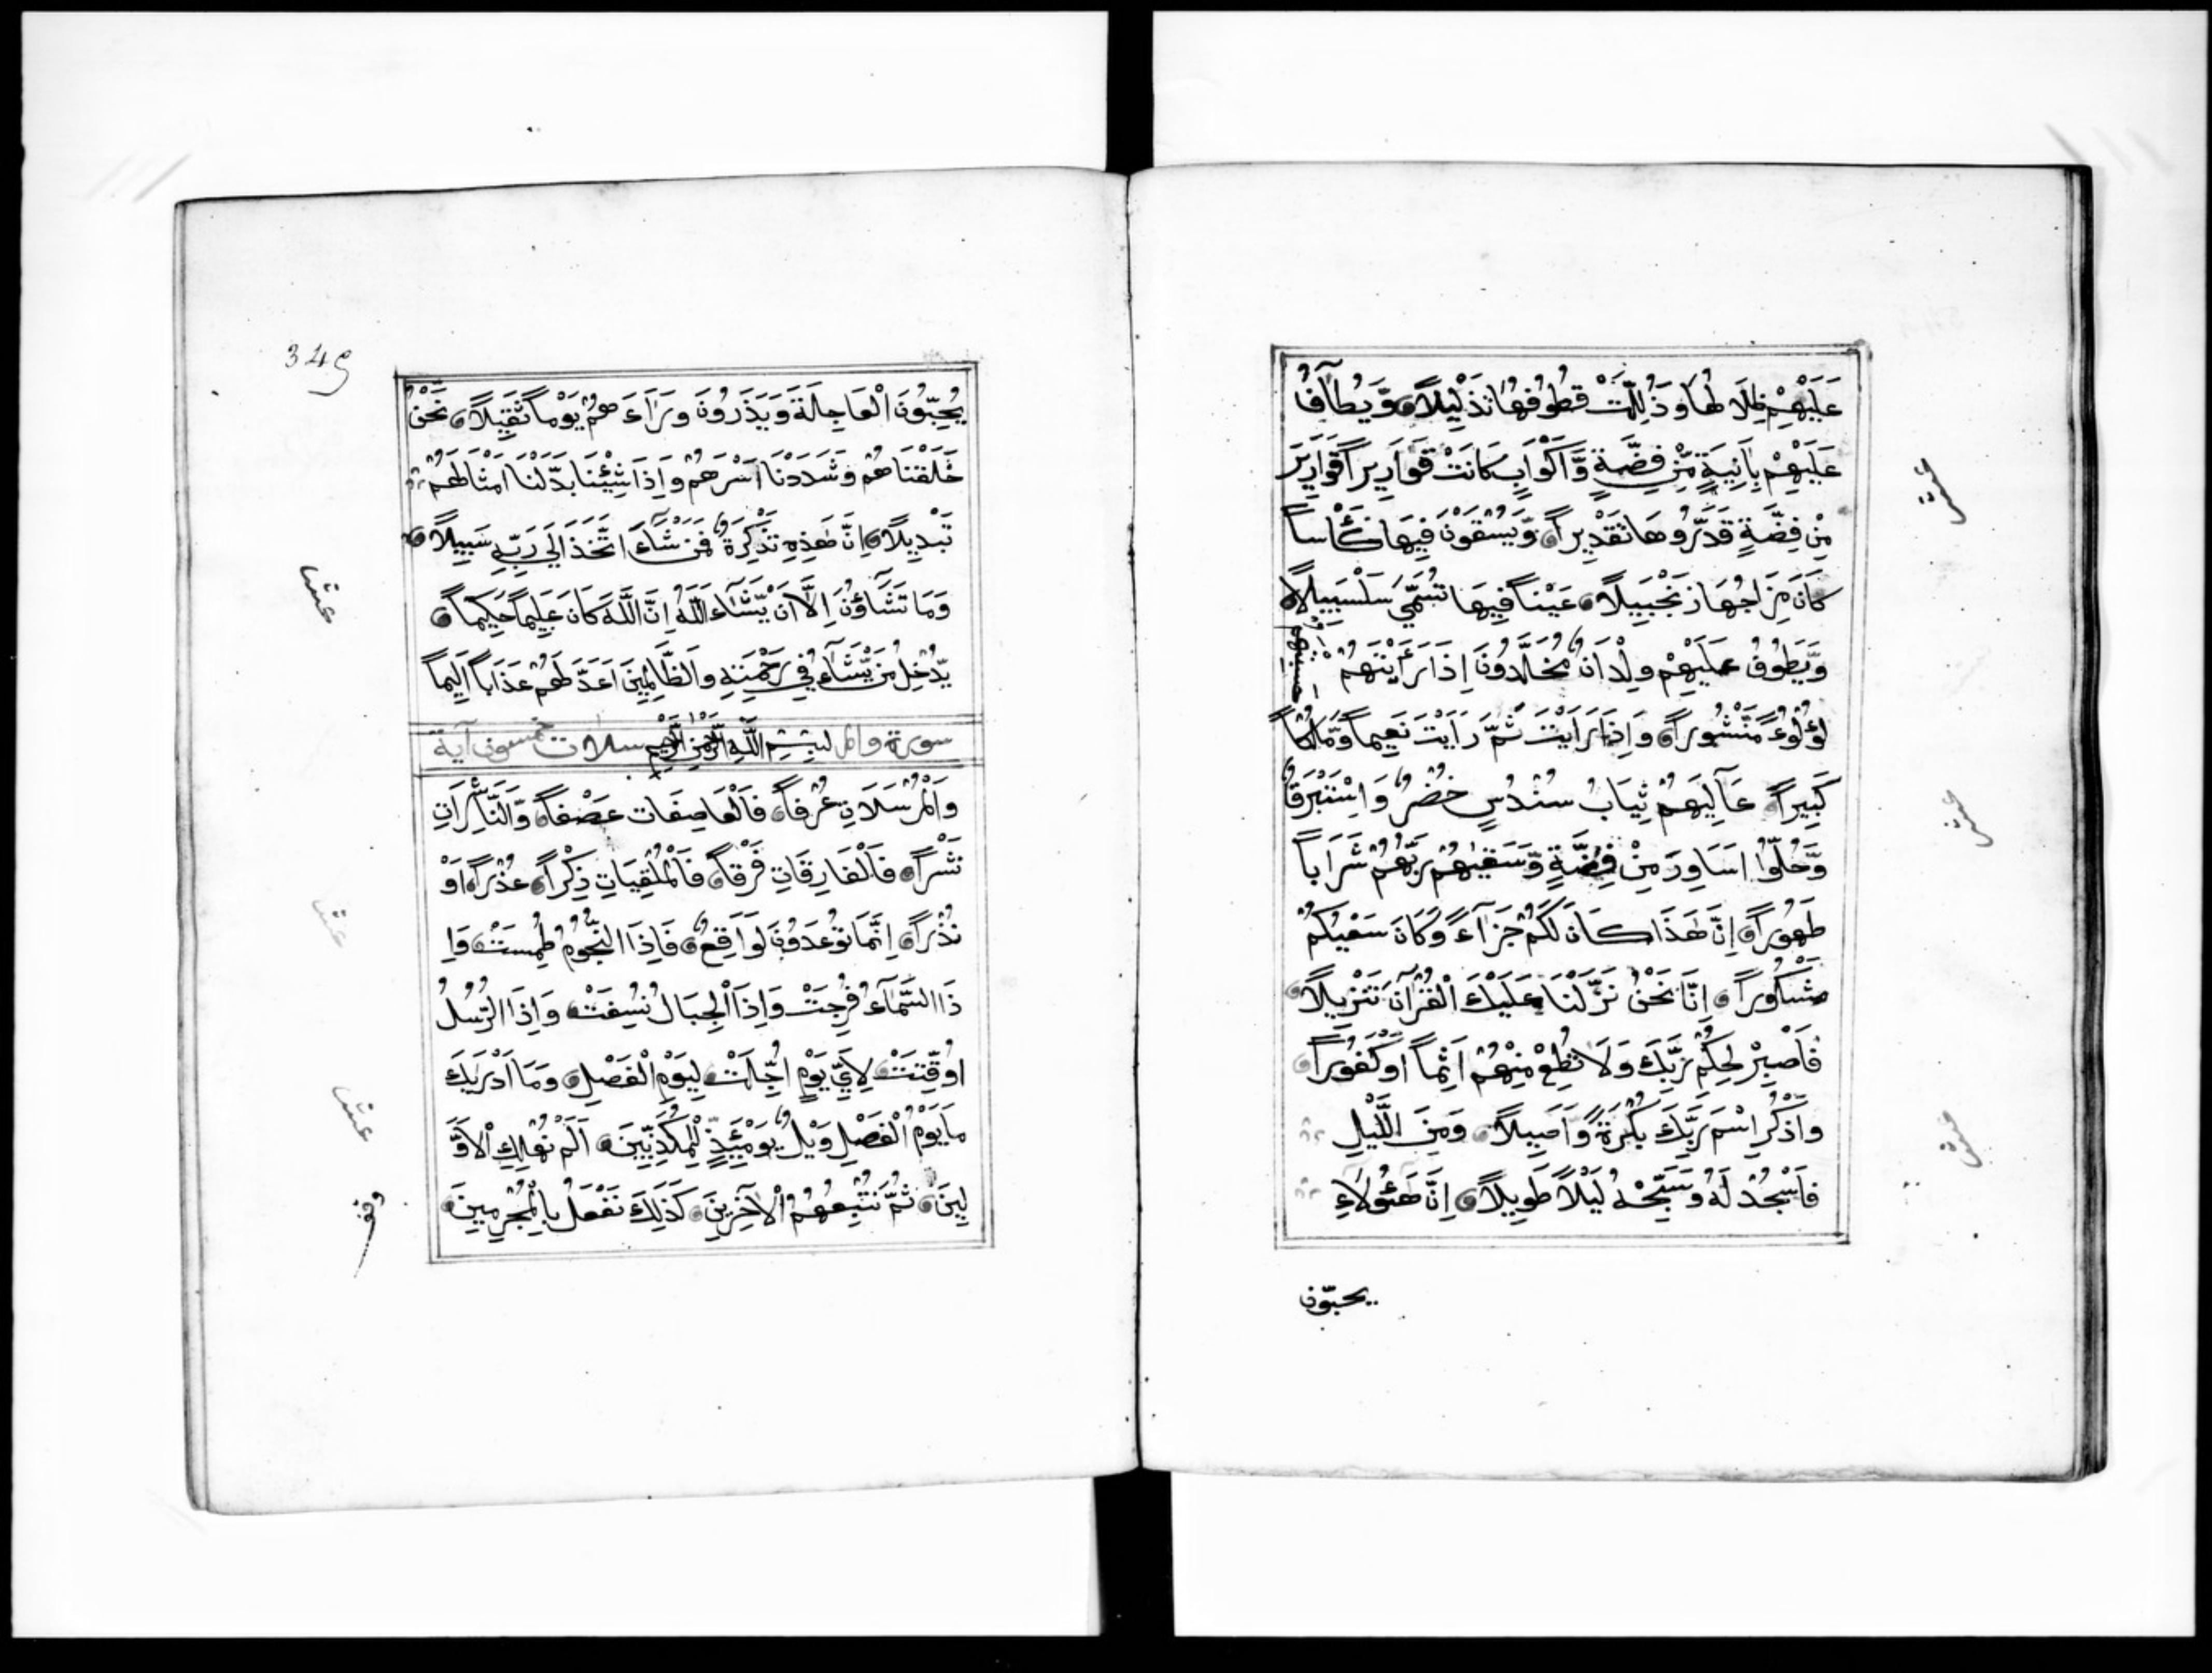 عَلَيْهِمْ ظِلَالُهَا وَذُلِّلَتْ قُطُوفُهَا تَذْلِيلاً وَّيُطَآفُ
عَلَيْهِمْ بِآنِيَةٍ مِّنْ فِضَّةٍ وَّاَكْوَابٍ كَانَتْ قَوَارِيرَاً قَوَارِيرَ
مِنْ فِضَّةٍ قَدَّرُوهَا تَقْدِيراً وَيُسْقَوْنَ فِيهَا كَأْساً
كَانَ مِزَاجُهَا زَنْجَبِيلاً عَيْناً فِيهَا تُسَمّٰي سَلْسَبِيلاً
وَيَطُوفُ عَلَيْهِمْ وِلْدَانٌ مُّخَلَّدُونَ اِذَا رَأَيْتَهُمْ حسبتهم
لُؤْلُؤاً مَّنْثُوراً وَاِذَا رَاَيْتَ ثَمَّ رَاَيْتَ نَعِيماً وَّمُلْكاً
كَبِيراً عَآلِيَهُمْ ثِيَابُ سُنْدُسٍ خُضْرٌ وَاِسْتَبْرَقٌ
وَّحُلُّوْا اَسَاوِرَ مِنْ فِضَّةٍ وَّسَقٰيهُمْ رَبُّهُمْ شَرَاباً
طَهُوراً اِنَّ هٰذَا كَانَ لَكُمْ جَزَآءً وَّكَانَ سَعْيُكُمْ
مَشْكُوراً اِنَّا نَحْنُ نَزَّلْنَا عَلَيْكَ الْقُرْآنَ تَنْزِيلاً
فَاصْبِرْ لِحُكْمِ رَبِّكَ وَلَا تُطِعْ مِنْهُمْ آثِماً اَوْ كَفُوراً
وَاذْكُرِ اسْمَ رَبِّكَ بُكْرَةً وَّاَصِيلاً وَمِنَ اللَّيْلِ
فَاسْجُدْ لَهُ وَسَبِّحْهُ لَيْلاً طَوِيلاً اِنَّ هٰٓؤُلَاءِ
يحبّون
عشر
عشر
عشر
349
يُحِبُّونَ الْعَاجِلَةَ وَيَذَرُونَ وَرَآءَهُمْ يَوْماً ثَقِيلاً نَحْنُ
خَلَقْنَاهُمْ وَشَدَدْنَا اَسْرَهُمْ وَاِذَا شِئْنَا بَدَّلْنَا اَمْثَالَهُمْ
تَبْدِيلاً اِنَّ هٰذِهِ تَذْكِرَةٌ فَمَنْ شَآءَ اتَّخَذَ اِلٰي رَبِّهِ سَبِيلاً
وَمَا تَشَآؤُنَ اِلَّا اَنْ يَّشَآءَ اللّٰهُ اِنَّ اللّٰهَ كَانَ عَلِيماً حَكِيماً
يُّدْخِلُ مَنْ يَّشَآءُ فِي رَحْمَتِهِ وَالظَّالِمِينَ اَعَدَّ لَهُمْ عَذَاباً اَلِيماً
سورة والمر بِسْمِ اللّٰهِ الرَّحْمٰنِ الرَّحِيمِ سلات خمسون آية
وَالْمُرْسَلَاتِ عُرْفاً فَالْعَاصِفَاتِ عَصْفاً وَّالنَّاشِرَاتِ
نَشْراً فَالْفَارِقَاتِ فَرْقاً فَالْمُلْقِيَاتِ ذِكْراً عُذْراً اَوْ
نُذْراً اِنَّمَا تُوعَدُونَ لَوَاقِعٌ فَاِذَا النُّجُومُ طُمِسَتْ وَاِ
ذَا السَّمَآءُ فُرِجَتْ وَاِذَا الْجِبَالُ نُسِفَتْ وَاِذَا الرُّسُلُ
اُقِّتَتْ لِاَيِّ يَوْمٍ اُجِّلَتْ لِيَوْمِ الْفَصْلِ وَمَا اَدْرٰيكَ
مَا يَوْمُ الْفَصْلِ وَيْلٌ يَّوْمَئِذٍ لِّلْمُكَذِّبِينَ اَلَمْ نُهْلِكِ الْاَوَّ
لِينَ ثُمَّ نُتْبِعُهُمُ الْآخِرِينَ كَذٰلِكَ نَفْعَلُ بِالْمُجْرِمِينَ
عشر
عشر
عشر
وقف